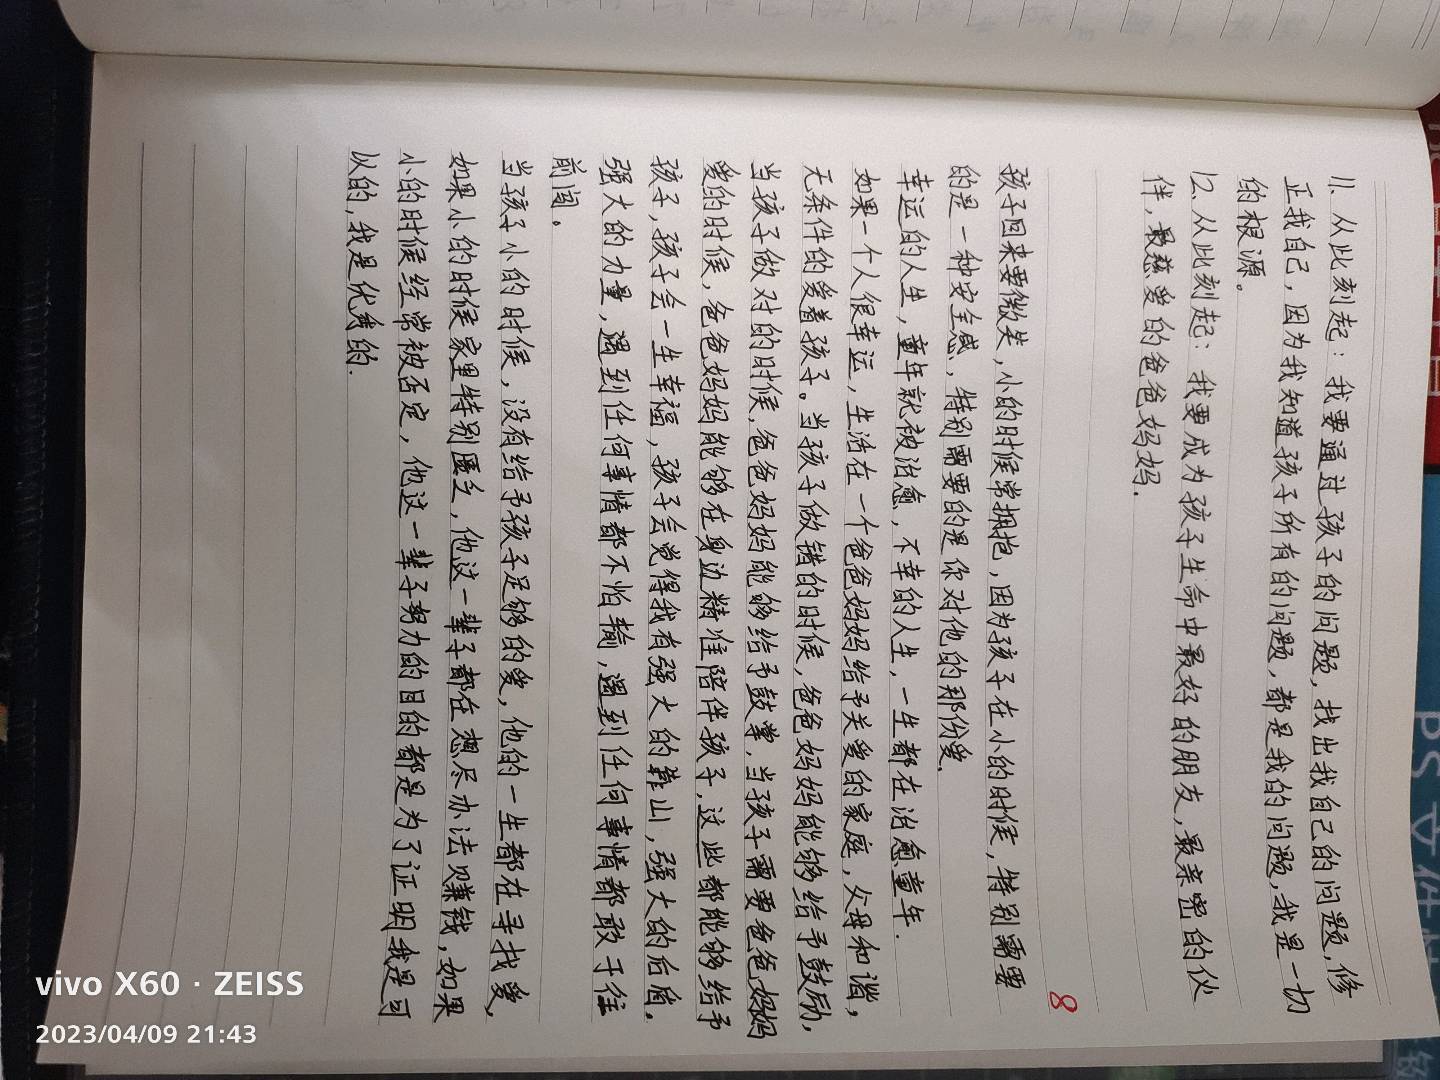 11. 从此刻起：我要通过孩子的问题，找出我自己的问题，修
正我自己，因为我知道孩子所有的问题，都是我的问题，我是一切
的根源。
12. 从此刻起：我要成为孩子生命中最好的朋友，最亲密的伙
伴，最慈爱的爸爸妈妈．
8
孩子回来要微笑，小的时候常拥抱，因为孩子在小的时候，特别需要
的是一种安全感，特别需要的是你对他的那份爱．
幸运的人生，童年就被治愈，不幸的人生，一生都在治愈童年．
如果一个人很幸运，生活在一个爸爸妈妈给予关爱的家庭，父母和谐，
无条件的爱着孩子。当孩子做错的时候，爸爸妈妈能够给予鼓励，
当孩子做对的时候，爸爸妈妈能够给予鼓掌，当孩子需要爸爸妈妈
爱的时候，爸爸妈妈能够在身边精准陪伴孩子，这些都能够给予
孩子，孩子会一生幸福，孩子会觉得我有强大的靠山，强大的后盾。
强大的力量，遇到任何事情都不怕输，遇到任何事情都敢于往
前闯。
当孩子小的时候，没有给予孩子足够的爱，他的一生都在寻找爱，
如果小的时候家里特别匮乏，他这一辈子都在想尽办法赚钱，如果
小的时候经常被否定，他这一辈子努力的目的都是为了证明我是可
以的，我是优秀的．
PS文件
vivo X60 · ZEISS
2023/04/09 21:43